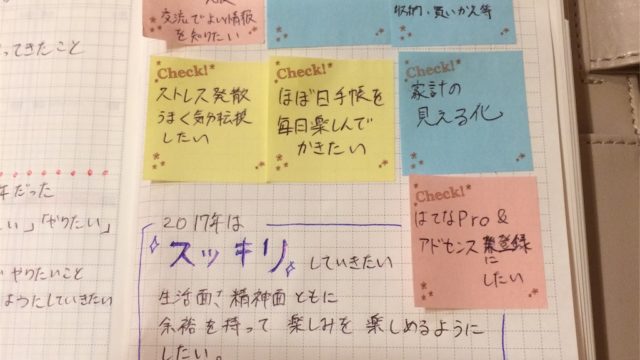 交流でよい情報
を知りたい
収納・買いかえ等
Check!
ストレス発散
うまく気分転換
したい
Check!
ほぼ日手帳を
毎日楽しんで
かきたい
Check!
家計の
見える化
Check!
はてなPro &
アドセンス
登録
に
したい
ってきたこと
年だった
い」「やりたい」
やりたいこと
ようにしていきたい
2017年は
スッキリ
していきたい
生活面、精神面ともに
余裕を持って 楽しみを 楽しめるように
したい。